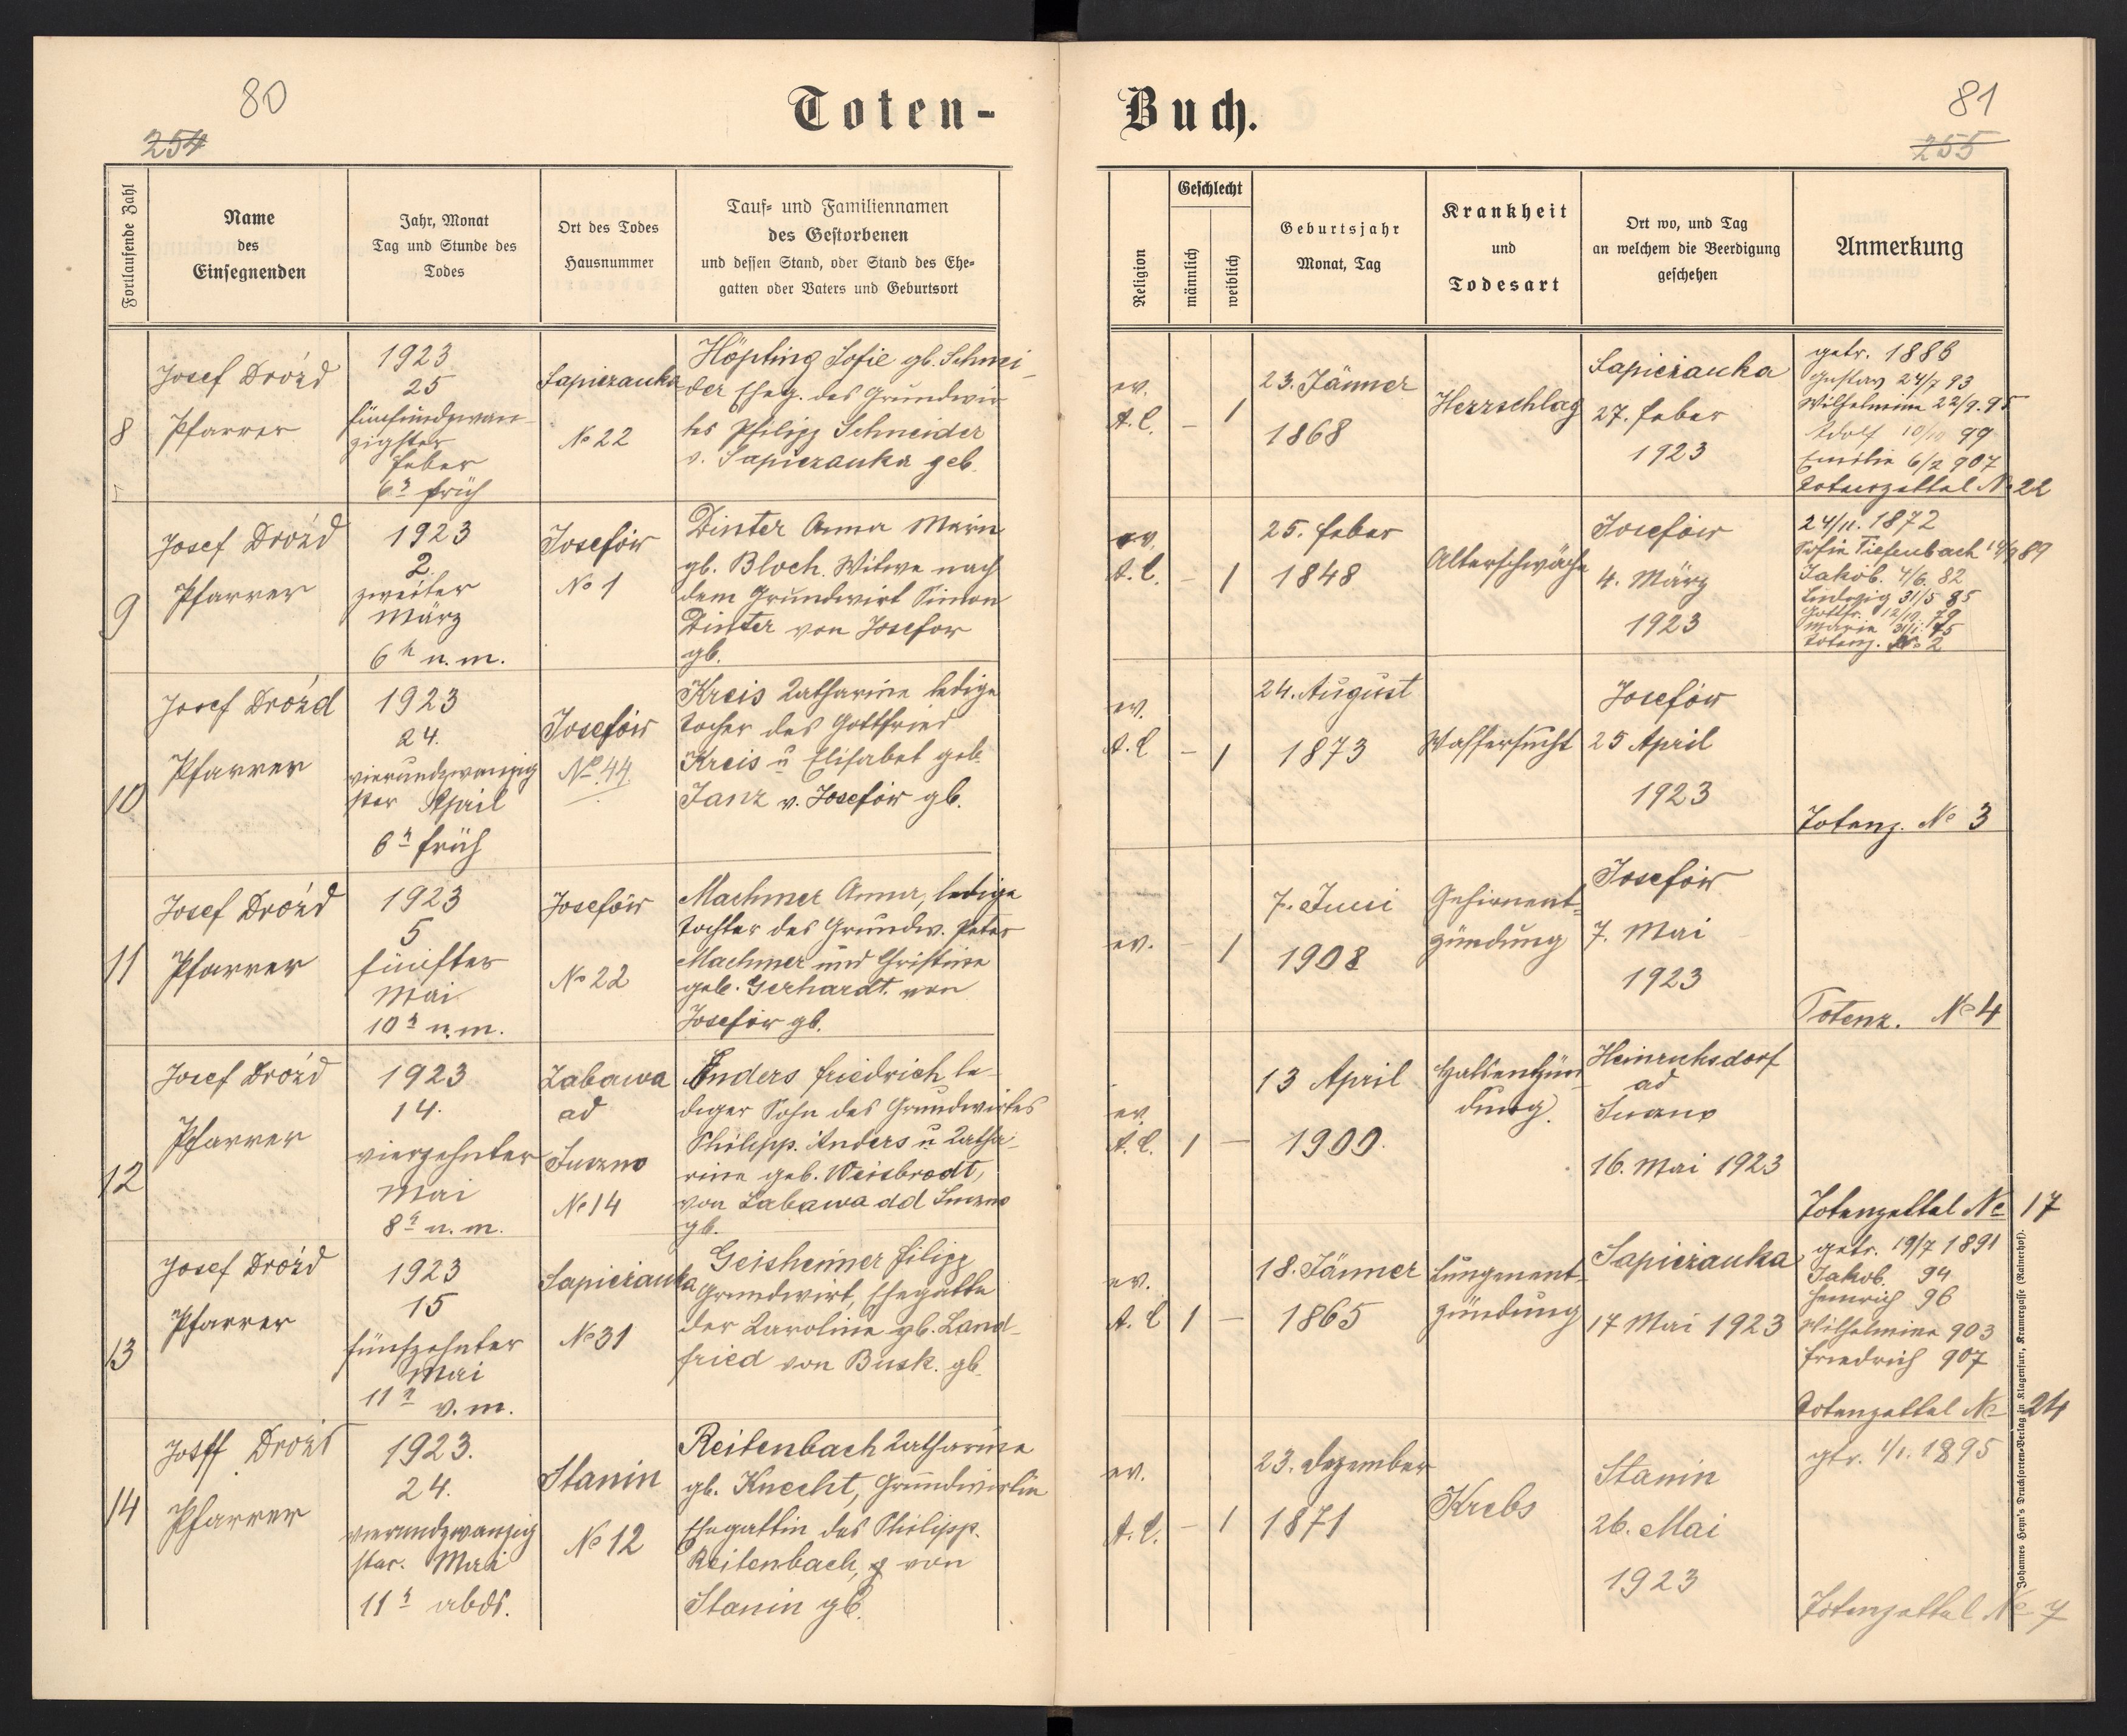 80
254
Toten-
Fortlaufende Zahl
Name
des
Einsegnenden
Jahr, Monat
Tag und Stunde des
Todes
Ort des Todes
Hausnummer
Tauf- und Familiennamen
des Gestorbenen
und dessen Stand, oder Stand des Ehe-
gatten oder Vaters und Geburtsort
8
Josef Droźd
Pfarrer
1923
25
fünfundzwan-
zigster
Feber
6h früh
Sapieżanka
No 22
Höpfing Sofie gb. Schnei-
der Eheg. des Grundwir
tes Philipp Schneider
v. Sapiezanka geb.
9
Josef Droźd
Pfarrer
1923
2.
zweiter
März
6h n.m.
Josefów
No 1
Dinter Anna Marie
gb. Bloch. Witwe nach
dem Grundwirt Simon
Dinter von Josefow
gb.
10
Josef Droźd
Pfarrer
1923
24.
vierundzwanzig
ster April
6h früh
Josefów
No 44.
Kreis Katharine ledige
Tocher des Gottfried
Kreis u Elisabet geb.
Janz v. Josefów gb.
11
Josef Droźd
Pfarrer
1923
5
fünfter
Mai
10h n.m.
Josefów
No 22
Machmer Anna, ledige
Tochter des Grundw. Peter
Machmer und Christine
geb. Gerhardt. von
Josefów gb.
12
Josef Droźd
Pfarrer
1923
14.
vierzehnter
Mai
8h n.m.
Zabawa
ad
No 14
Enders Friedrich le-
diger Sohn des Grundwirtes
Philipp. Anders u Katha-
rine geb. Weisbrodt,
von Zabawa ad
gb.
13
Josef Droźd
Pfarrer
1923
15
fünfzehnter
Mai
11h v.m.
Sapieżanka
No 31
Geisheimer Filipp
Grundwirt, Ehegatte
der Karoline gb. Land-
fried von Busk. gb.
14
Josef Droźd
Pfarrer
1923.
24.
vierundzwanzig
ster. Mai
11h abds.
Stanin
No 12
Reitenbach Katharine
gb. Knecht, Grundwirtin
Ehegattin des Philipp.
Reitenbach, von
Stanin gb.
Buch.
81
255
Religion
Geschlecht
männlich
weiblich
Geburtsjahr
Monat, Tag
Krankheit
und
Todesart
Ort wo, und Tag
an welchem die Beerdigung
geschehen
Anmerkung
ev.
A.C.
–
1
23. Jänner
1868
Herzschlag
Sapieżanka
27. Feber
1923
getr. 1886
Gustav 24/7 93
Wilhelmine 22/9. 95
Adolf 10/10 99
Emilie 6/2 907
Totenzettel No 22
ev.
A.C.
–
1
25. Feber
1848
Altersschwäche
Josefów
4. März
1923
24/11. 1872
Sofie Tiefenbach 89
Jakob. 4/6. 82
Ludwig 31/5 85
Gottfr. 12/10. 79
Marie 31/1. 75
Totenz. No 2
ev.
A.C
–
1
24. August
1873
Wassersucht
Josefów
25 April
1923
Totenz. No 3
ev.
–
1
7. Juni
1908
Gehirnent-
zündung
Josefów
7. Mai
1923
Totenz. No 4
ev.
A.C.
1
–
13 April
1900.
Halsentzün
dung.
Heinrichsdorf
ad
16. Mai 1923
Totenzettel No 17
ev.
A.C
1
–
18. Jänner
1865
Lungenent-
zündung
Sapieżanka
17 Mai 1923
getr. 19/7 1891
Jakob. 94
Heinrich 96
Wilhelmine 903
Friedrich 907
Totenzettel No 24
ev.
A.C.
–
1
23. Dezember
1871
Krebs
Stanin
26. Mai
1923
gtr. 1/1. 1895
Totenzettel No 7
Johannes Heyn's Drucksorten-Verlag in Klagenfurt, Kramergasse (Rainerhof).